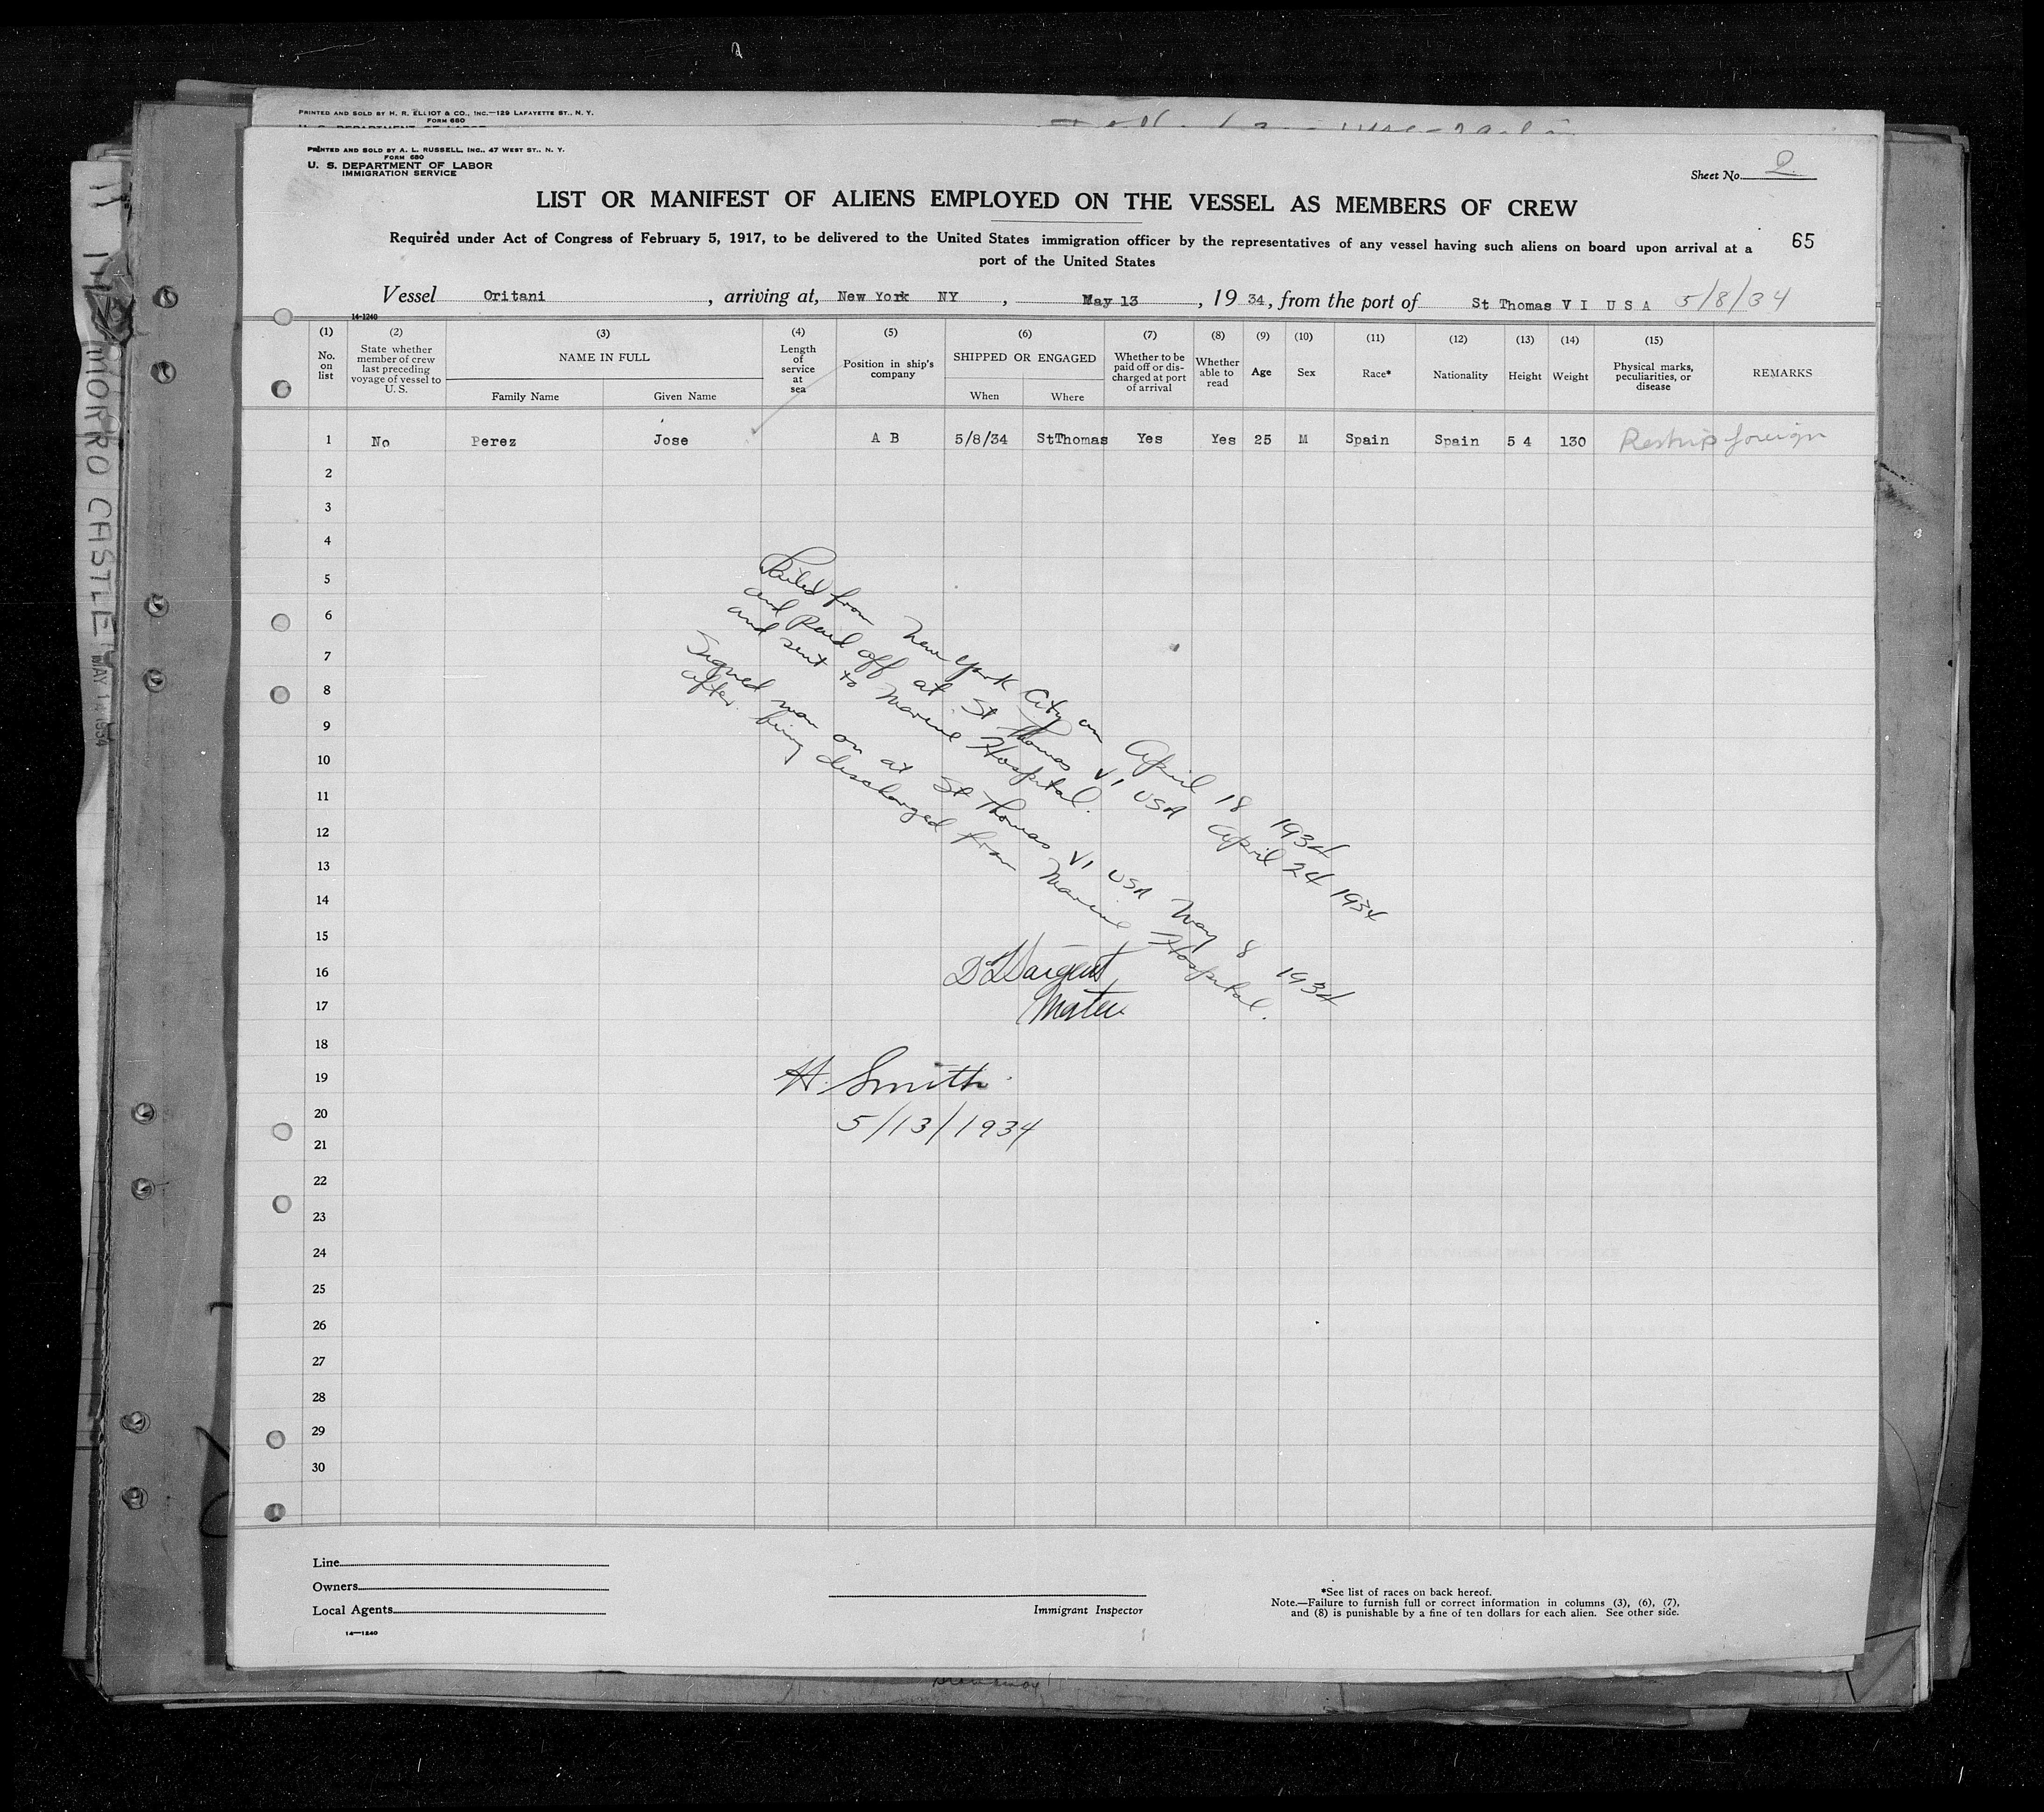 PRINTED AND SOLD BY H. R. ELLIOT & CO., INC.—129 LAFAYETTE ST., N. Y.
FORM 680
PRINTED AND SOLD BY A. L. RUSSELL, INC., 47 WEST ST., N. Y.
FORM 680
U. S. DEPARTMENT OF LABOR
IMMIGRATION SERVICE
Sheet No. 2
LIST OR MANIFEST OF ALIENS EMPLOYED ON THE VESSEL AS MEMBERS OF CREW
65
Required under Act of Congress of February 5, 1917, to be delivered to the United States immigration officer by the representatives of any vessel having such aliens on board upon arrival at a
port of the United States
Vessel Oritani, arriving at, New York NY, May 13, 1934, from the port of St Thomas V I U S A 5/8/34
14-1240
(1) (2) (3) (4) (5) (6) (7) (8) (9) (10) (11) (12) (13) (14) (15)
No. on list
State whether member of crew last preceding voyage of vessel to U. S.
NAME IN FULL
Family Name
Given Name
Length of service at sea
Position in ship's company
SHIPPED OR ENGAGED
When
Where
Whether to be paid off or discharged at port of arrival
Whether able to read
Age
Sex
Race*
Nationality
Height
Weight
Physical marks, peculiarities, or disease
REMARKS
1 No Perez Jose A B 5/8/34 StThomas Yes Yes 25 M Spain Spain 5 4 130 Reship foreign
2
3
4
5
6
7
8
9
10
11
12
13
14
15
16
17
18
19
20
21
22
23
24
25
26
27
28
29
30
Sailed from New York City on April 18 1934
and Paid off at St Thomas VI USA April 24 1934
and sent to Marine Hospital.
Signed man on at St Thomas VI USA May 8 1934
after being discharged from Marine Hospital.
D L Sargent
Master
H. Smith
5/13/1934
Line
Owners
Local Agents
14—1240
Immigrant Inspector
*See list of races on back hereof.
Note.—Failure to furnish full or correct information in columns (3), (6), (7),
and (8) is punishable by a fine of ten dollars for each alien. See other side.
MORRO CASTLE
MAY 14 1934